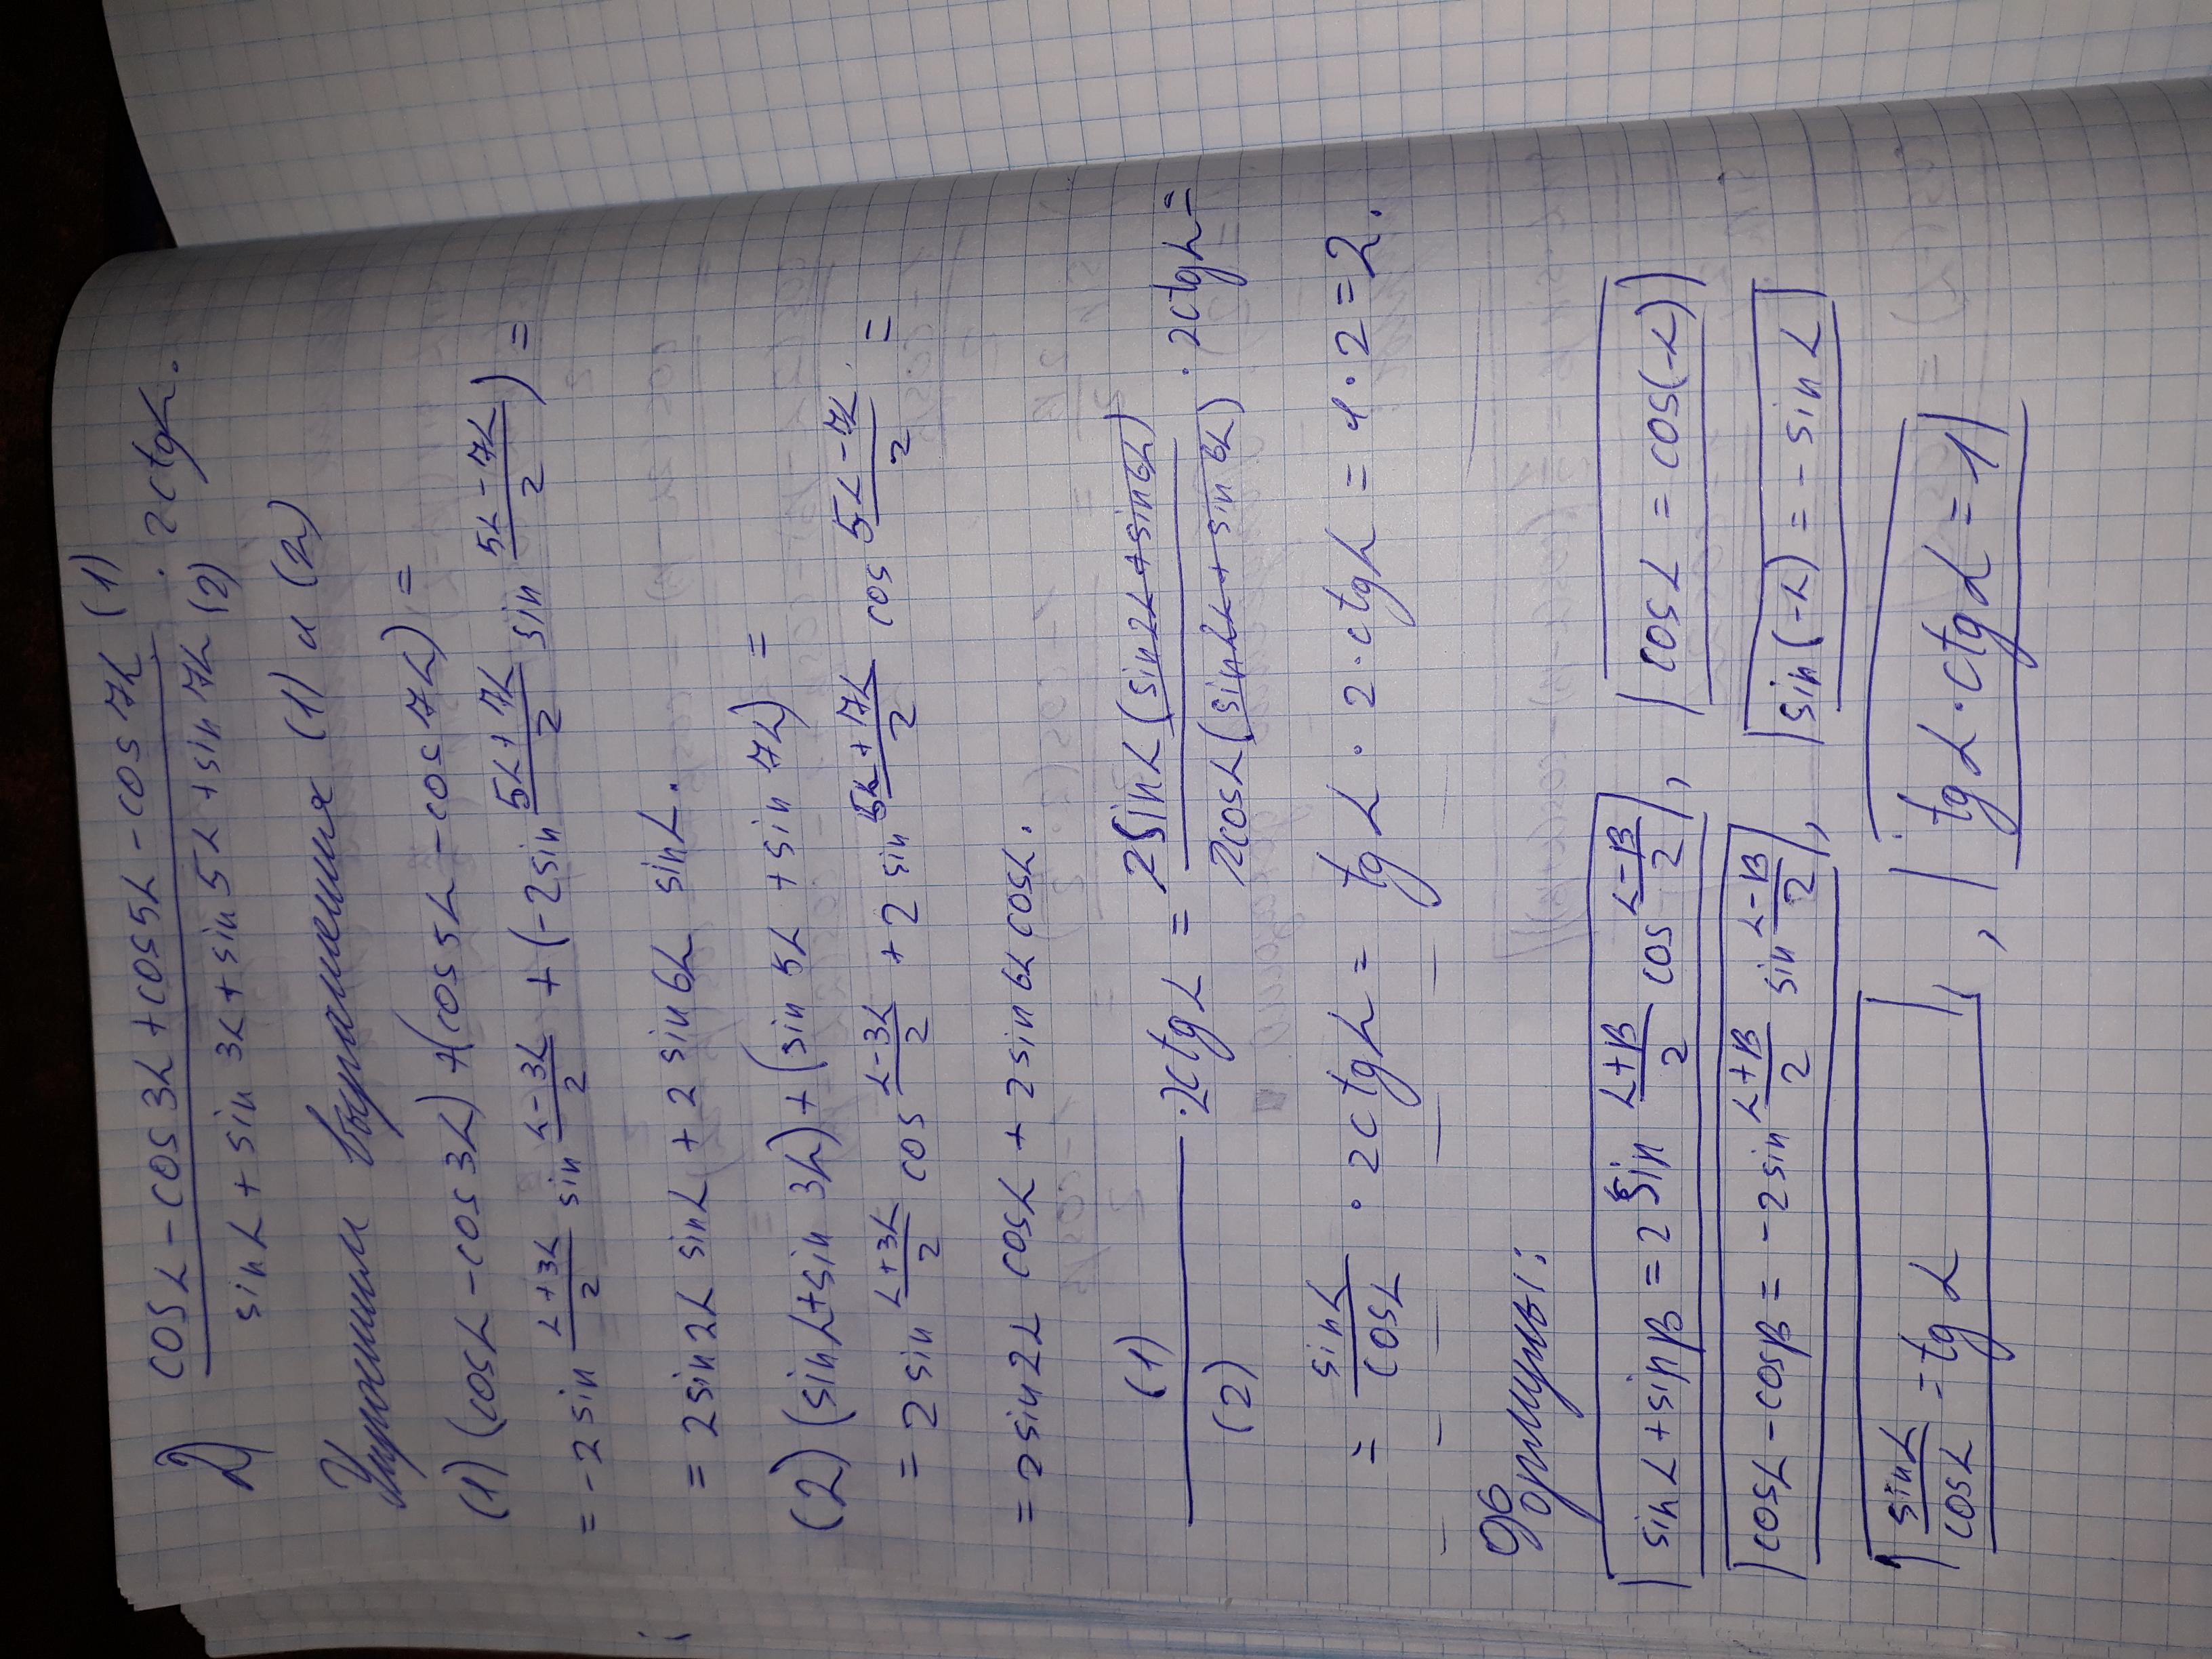 2) (cos α - cos 3α + cos 5α - cos 7α (1)) / (sin α + sin 3α + sin 5α + sin 7α (2)) · 2ctgα.
Упростим выражения (1) и (2)
(1) (cosα - cos 3α) + (cos 5α - cos 7α) =
= -2 sin (α+3α)/2 sin (α-3α)/2 + (-2 sin (5α+7α)/2 sin (5α-7α)/2) =
= 2 sin 2α sinα + 2 sin 6α sinα.
(2) (sinα + sin 3α) + (sin 5α + sin 7α) =
= 2 sin (α+3α)/2 cos (α-3α)/2 + 2 sin (5α+7α)/2 cos (5α-7α)/2 =
= 2 sin 2α cosα + 2 sin 6α cosα.
(1)/(2) · 2ctgα = 2sinα(sin2α + sin6α) / 2cosα(sin2α + sin6α) · 2ctgα =
= sinα/cosα · 2ctgα = tgα · 2 · ctgα = 1 · 2 = 2.
Формулы:
sinα + sinβ = 2 sin (α+β)/2 cos (α-β)/2, cosα = cos(-α)
cosα - cosβ = -2 sin (α+β)/2 sin (α-β)/2, sin(-α) = - sinα
sinα/cosα = tgα, tgα · ctgα = 1